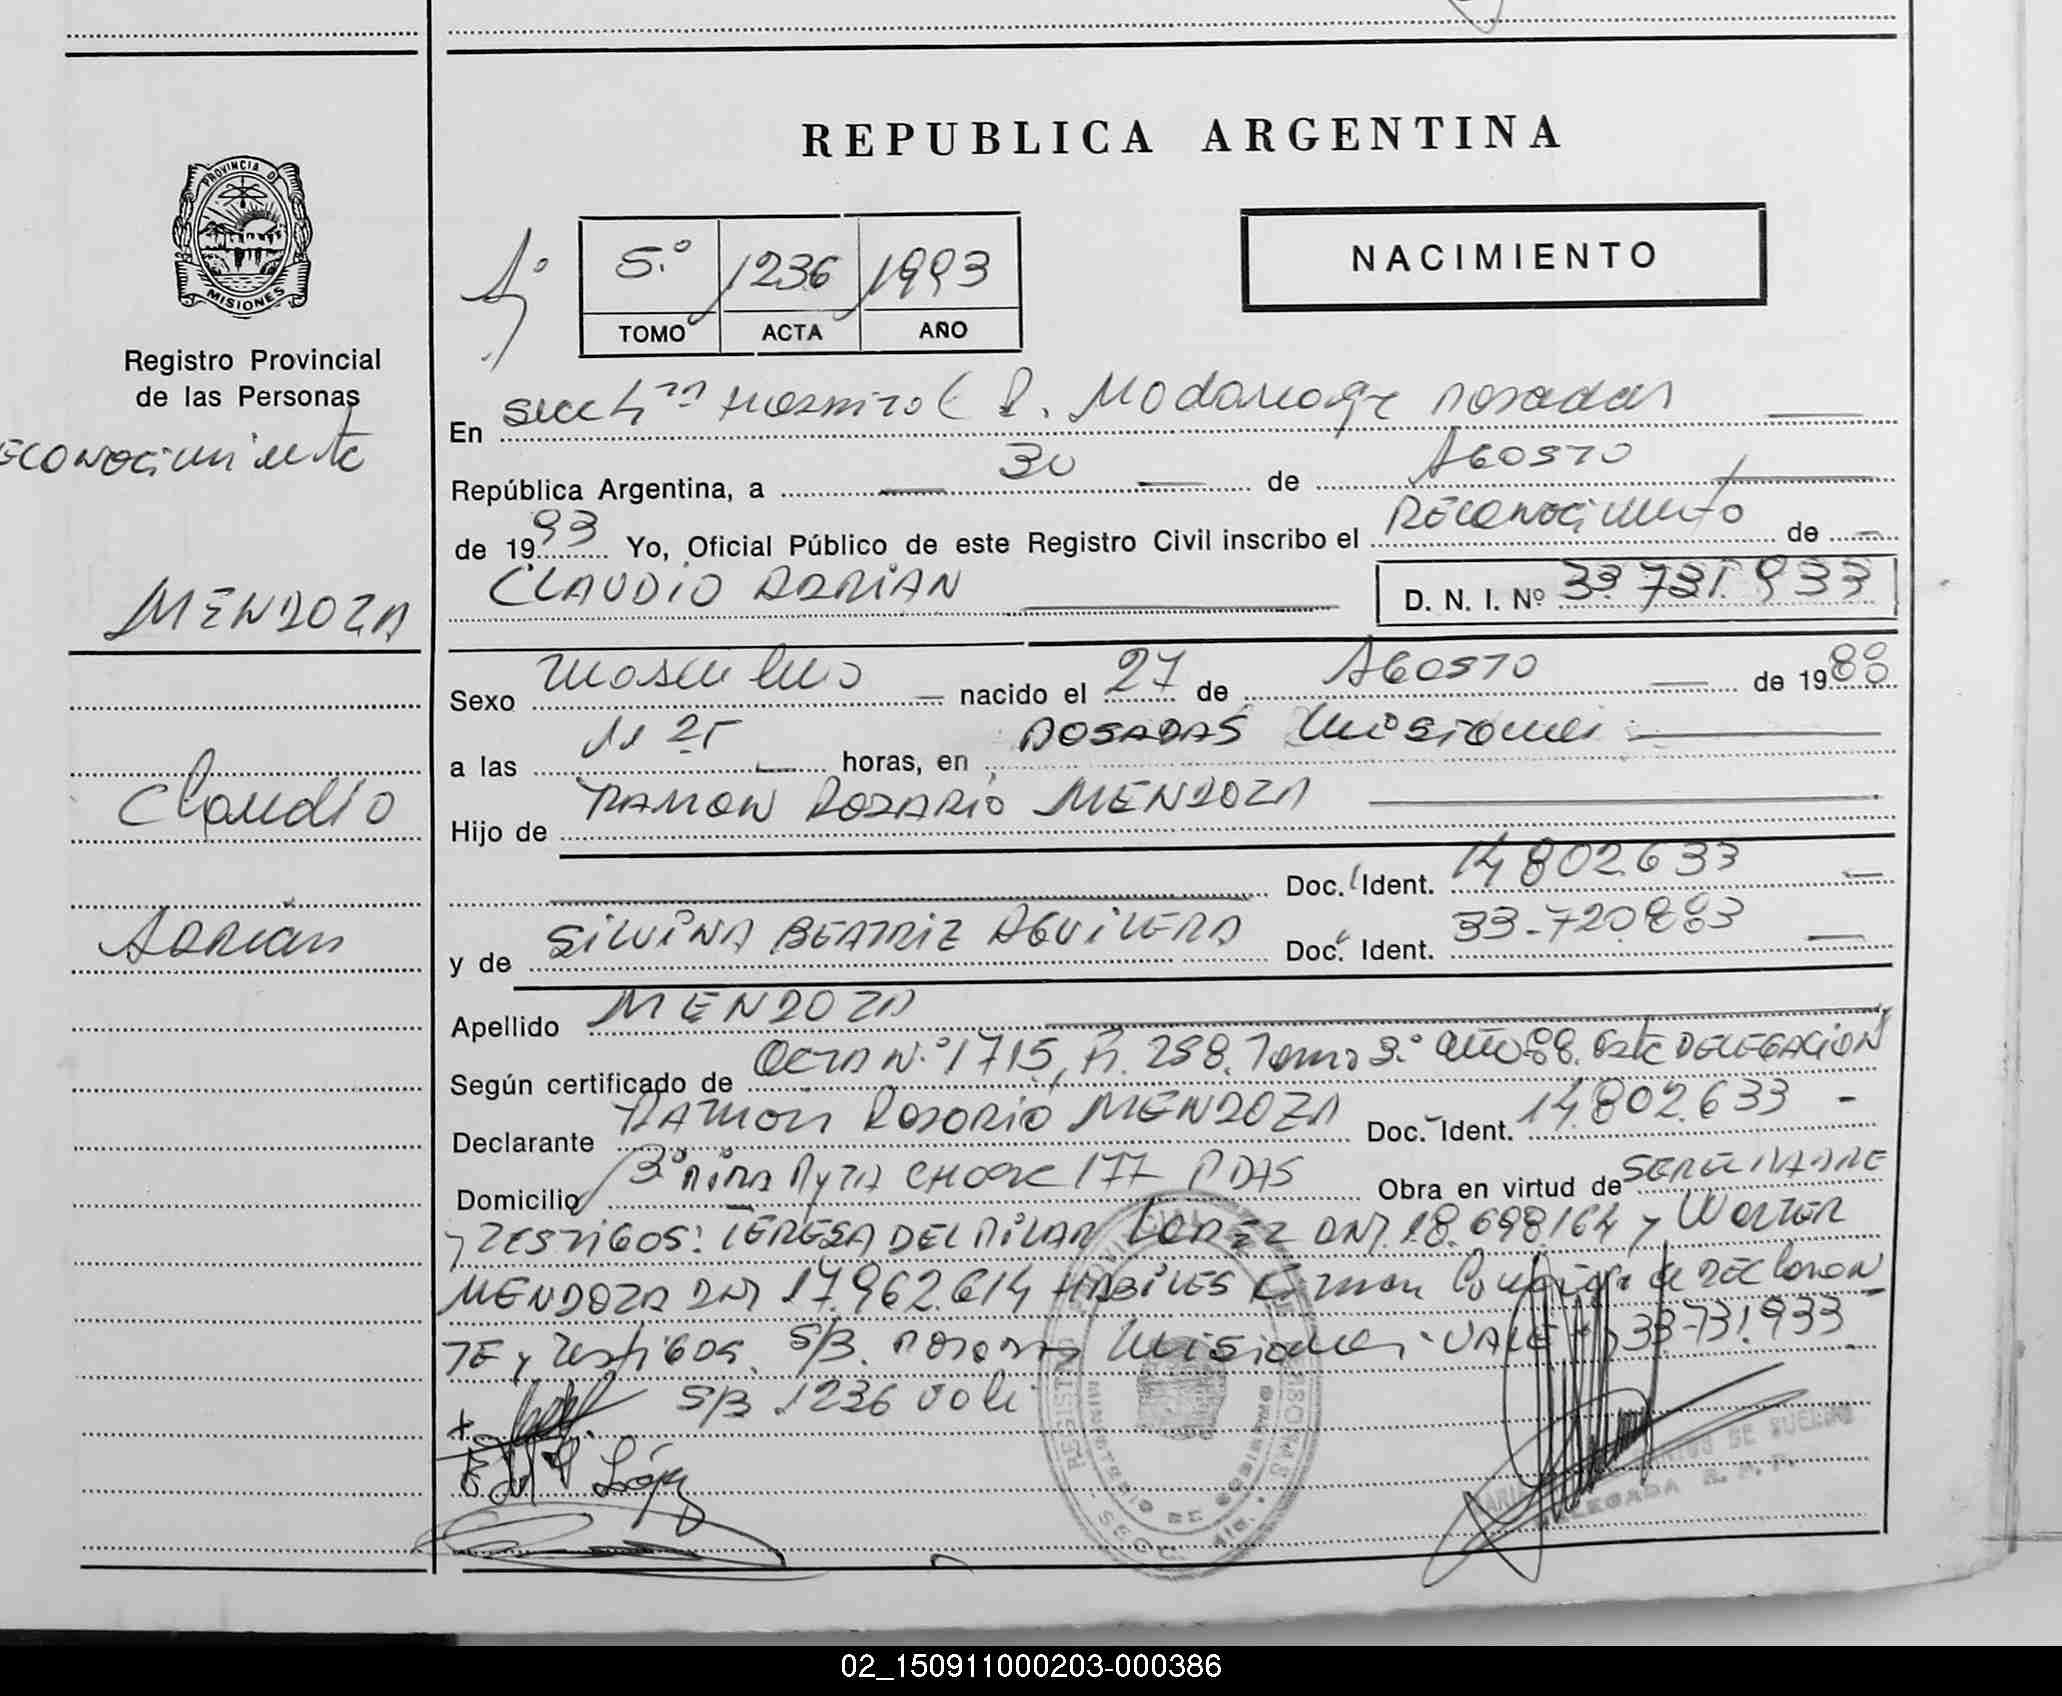 REPUBLICA ARGENTINA
PROVINCIA D
MISIONES
Registro Provincial
de las Personas
econocimiento
MENDOZA
Claudio
Adrián
5.º 1236 1993
TOMO ACTA AÑO
NACIMIENTO
En Secc 4ª Hospital R. Madariaga Posadas
República Argentina, a 30 de AGOSTO
de 1993 Yo, Oficial Público de este Registro Civil inscribo el RECONOCIMIENTO de
CLAUDIO ADRIÁN D. N. I. Nº 33.731.933
Sexo Masculino nacido el 27 de AGOSTO de 1988
a las 11 25 horas, en POSADAS Misiones
Hijo de RAMON ROSARIO MENDOZA
Doc. Ident. 14.802.633
y de SILVINA BEATRIZ AGUILERA Doc. Ident. 33.720.883
Apellido MENDOZA
Según certificado de Acta N.º 1715, F. 258. Tomo 3.º año 88. Este DELEGACION
Declarante RAMON ROSARIO MENDOZA Doc. Ident. 14.802.633
Domicilio CHACRE 177 PDAS Obra en virtud de SER EL PADRE
y TESTIGOS: TERESA DEL PILAR LOPEZ DNI. 18.698.164 y WALTER
MENDOZA DNI 17.962.614 HABILES Firman Conmigo de DECLARAN
TE y Testigos. S/B. POSADAS Misiones. VALE 33.731.933
S/B 1236 vale
López
REGISTRO PROVINCIAL DE LAS PERSONAS
MINISTERIO DE GOBIERNO
DELEGADA R. P. P.
02_150911000203-000386